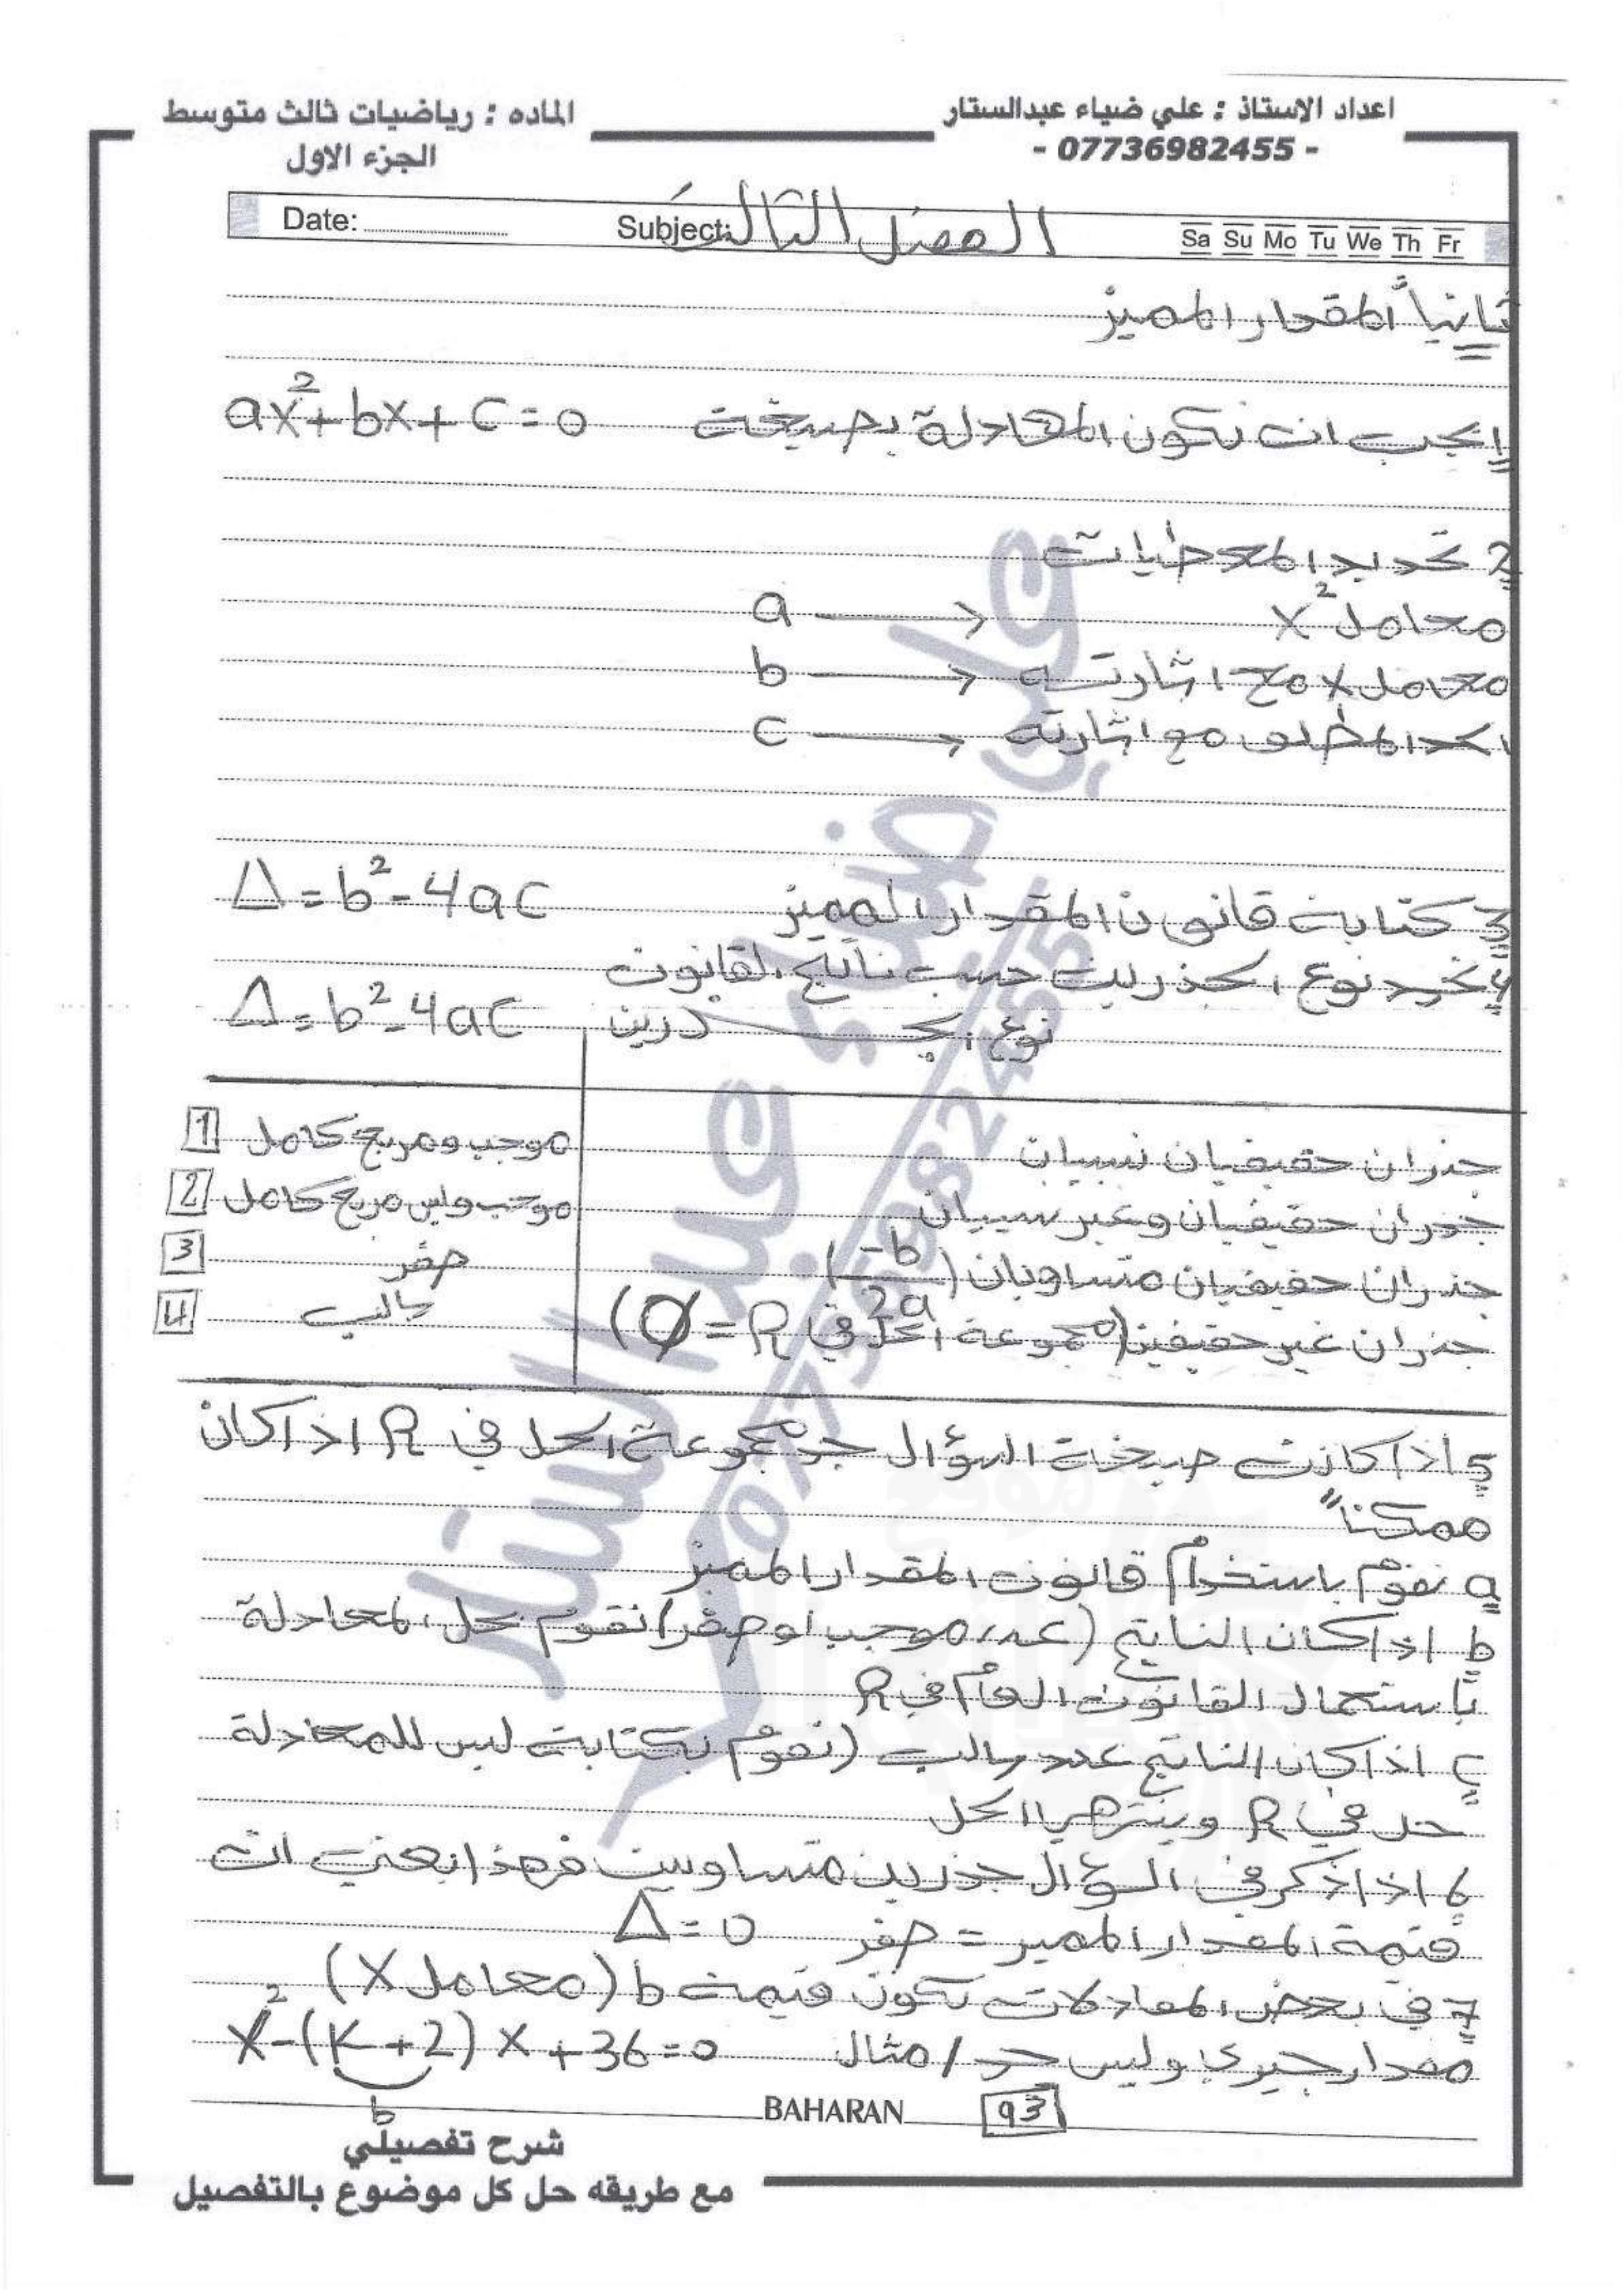 اعداد الاستاذ : علي ضياء عبدالستار
- 07736982455 -
الماده : رياضيات ثالث متوسط
الجزء الاول
Date: Subject: الفصل الثالث Sa Su Mo Tu We Th Fr
ثانياً المقدار المميز
1 يجب ان تكون المعادلة بصيغة ax²+bx+c=0
2 تحديد المعطيات
معامل x² → a
معامل x مع اشارته → b
الحد المطلق مع اشارته → c
3 كتابة قانون المقدار المميز Δ=b²-4ac
4 نحدد نوع الجذرين حسب ناتج القانون
نوع الجذرين Δ=b²-4ac
جذران حقيقيان نسبيان موجب ومربع كامل 1
جذران حقيقيان وغير نسبيان موجب وليس مربع كامل 2
جذران حقيقيان متساويان (-b/2a) صفر 3
جذران غير حقيقين (مجموعة الحل في R = Ø) سالب 4
5 اذا كانت صيغة السؤال جد مجموعة الحل في R اذا كان
ممكناً
a نقوم باستخدام قانون المقدار المميز
b اذا كان الناتج (عدد موجب او صفر) نقوم بحل المعادلة
باستعمال القانون العام في R
c اذا كان الناتج عدد سالب (نقوم بكتابة ليس للمعادلة
حل في R وينتهي الحل
6 اذا ذكر في السؤال جذرين متساويين فهذا يعني ان
قيمة المقدار المميز = صفر Δ=0
7 في بعض المعادلات تكون قيمة b (معامل x)
مقدار جبري وليس حد / مثال x²-(k+2)x+36=0
b
BAHARAN 93
شرح تفصيلي
مع طريقه حل كل موضوع بالتفصيل
علي ضياء عبد الستار
07736982455